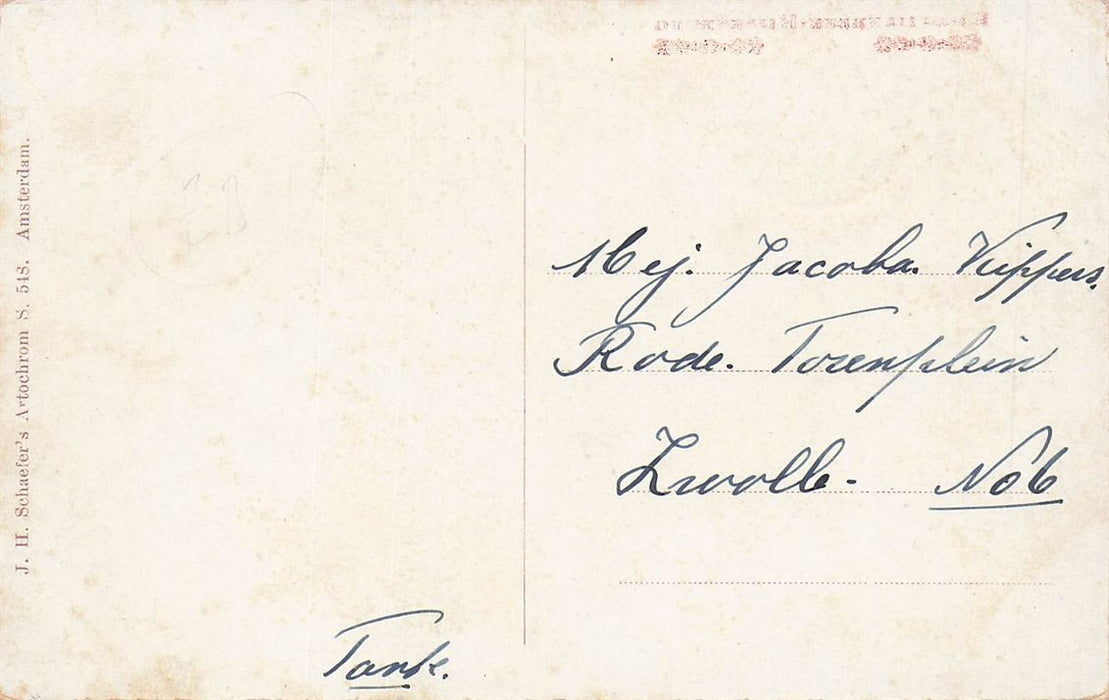 J. H. Schaefer's Artochrom S. 518. Amsterdam.
Mej. Jacoba. Kuippers.
Rode. Torenplein
Zwolle. No 6
Tante.